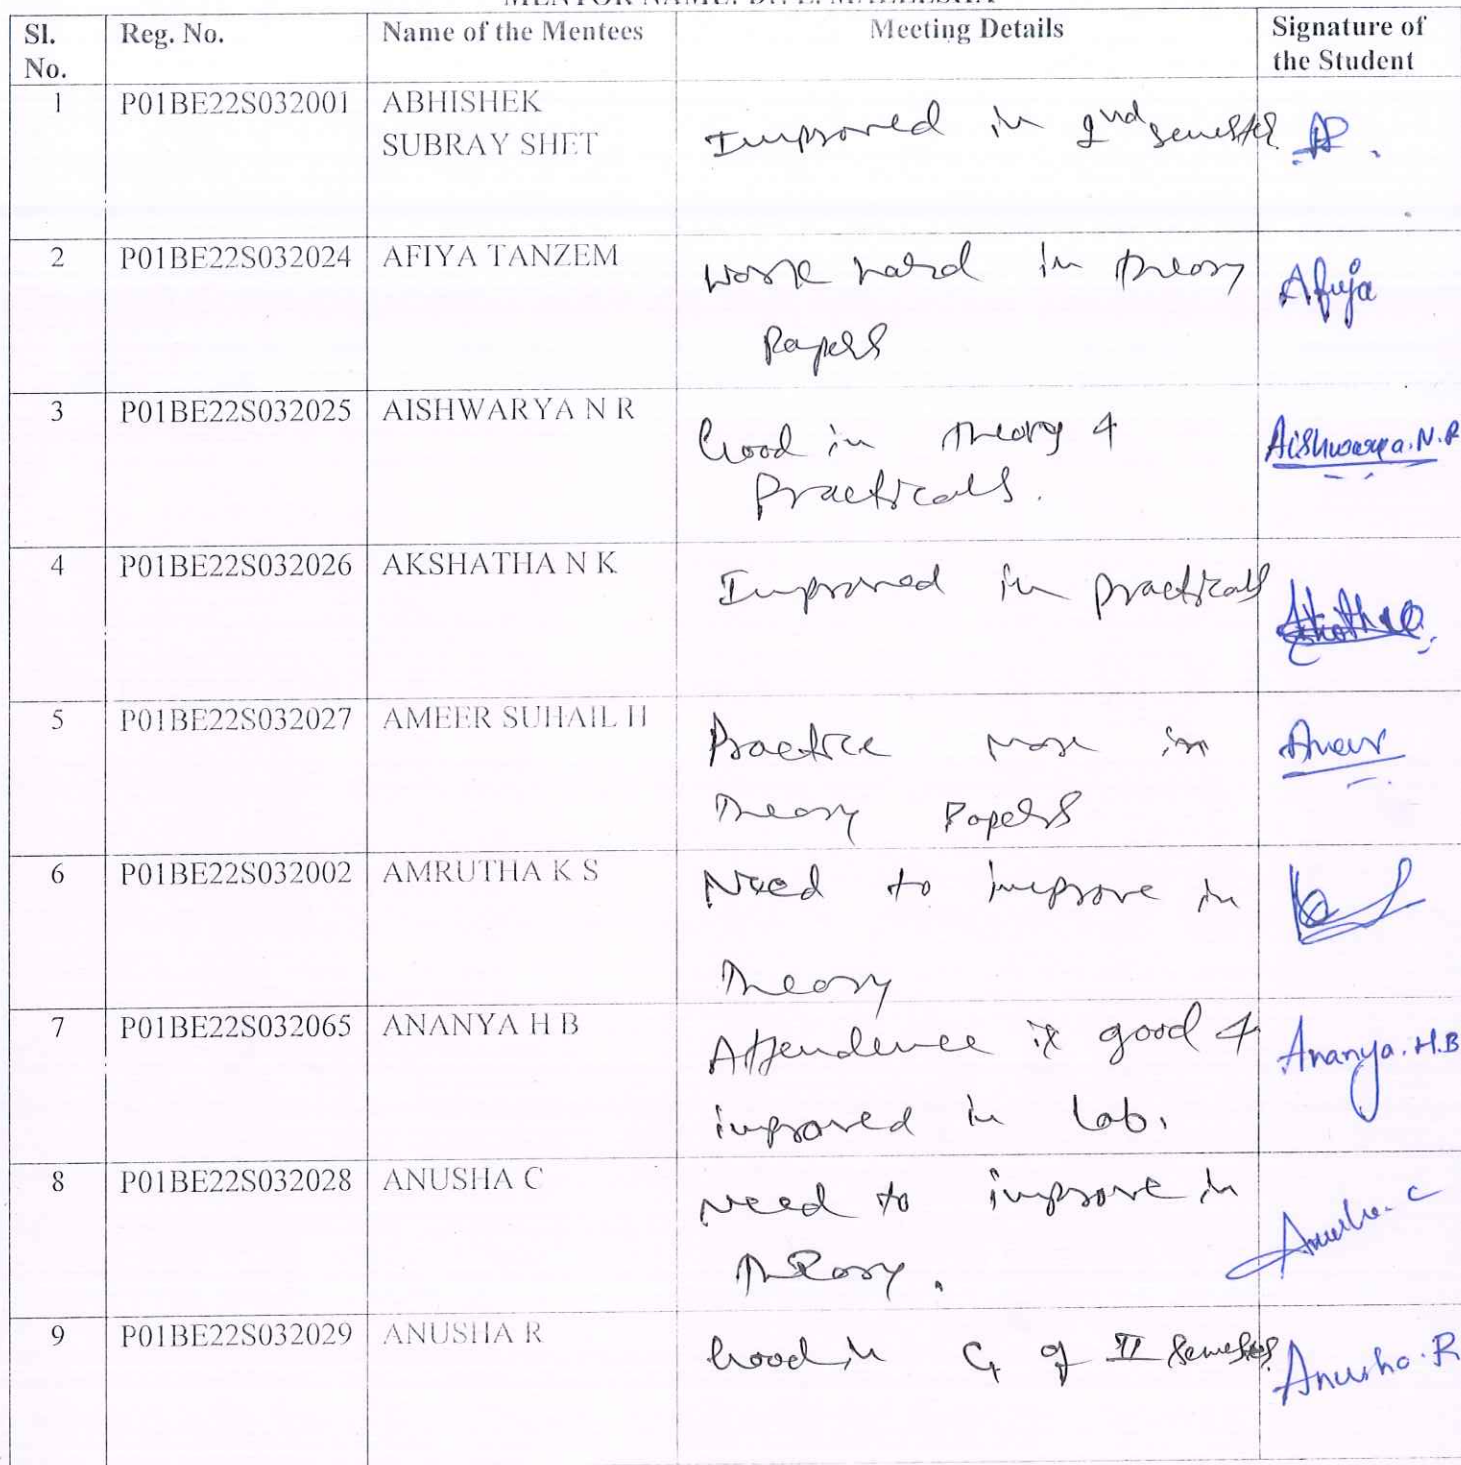 Sl. No. Reg. No. Name of the Mentees Meeting Details Signature of the Student
1 P01BE22S032001 ABHISHEK SUBRAY SHET Improved in 2nd semester
2 P01BE22S032024 AFIYA TANZEM Work hard in theory
Papers
3 P01BE22S032025 AISHWARYA N R Good in theory & Aishwarya.N.R
Practicals.
4 P01BE22S032026 AKSHATHA N K Improved in practicals
5 P01BE22S032027 AMEER SUHAIL H Practice more in
Theory Papers
6 P01BE22S032002 AMRUTHA K S Need to improve in
Theory
7 P01BE22S032065 ANANYA H B Attendence is good & Ananya.H.B
improved in lab.
8 P01BE22S032028 ANUSHA C Need to improve in Anusha.C
Theory.
9 P01BE22S032029 ANUSHA R Good in of II Semester Anusha.R